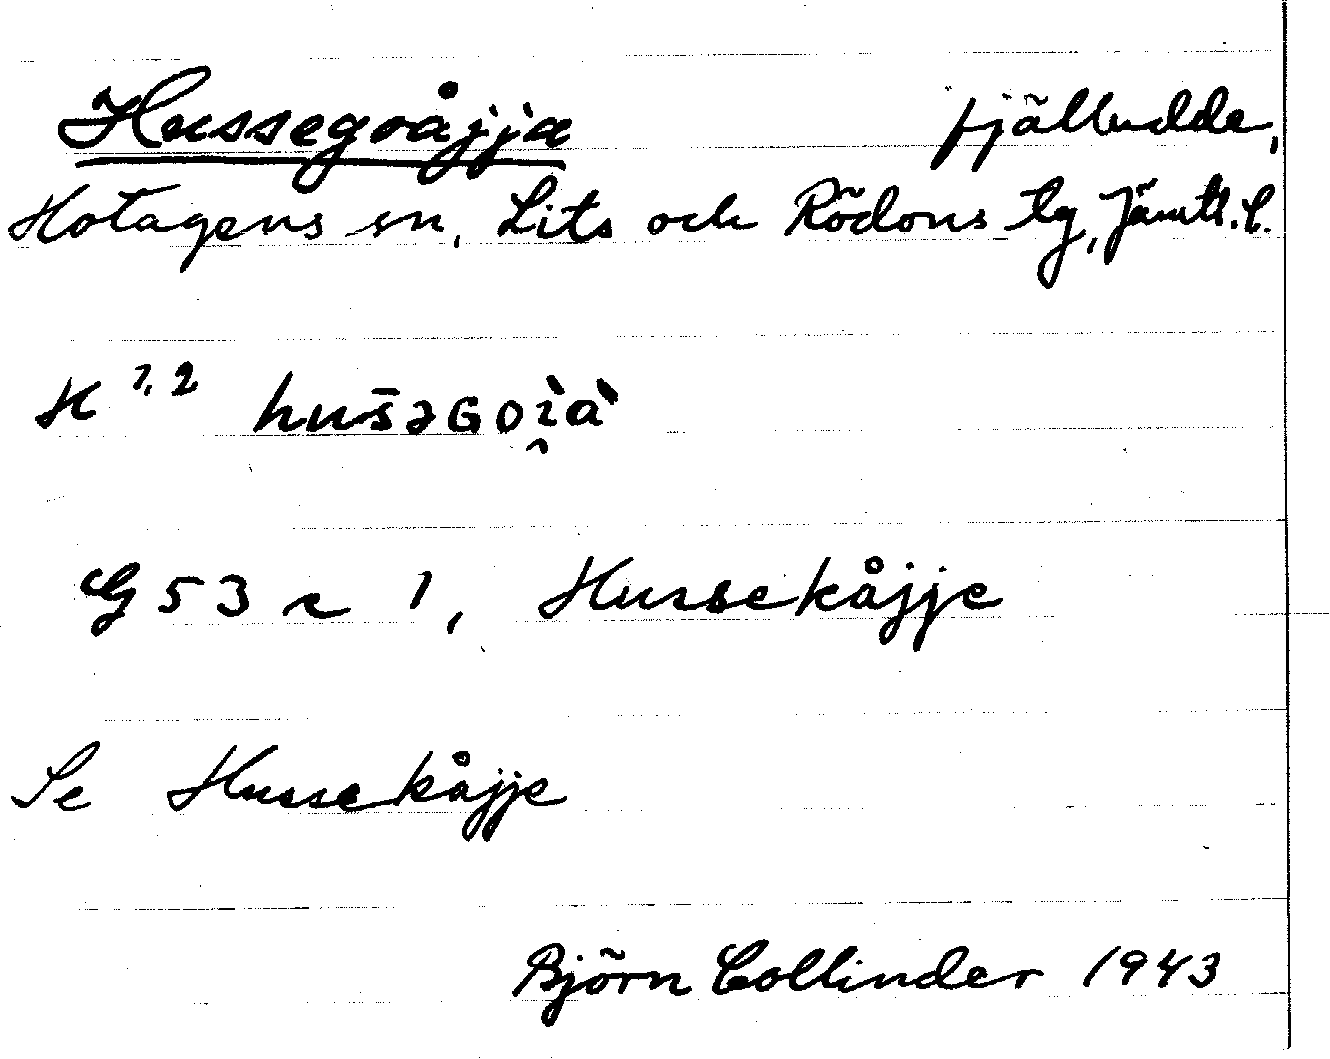 Hussegoåjja fjälludde,
Hotagens sn, Lits och Rödöns tg, Jämtl. l.
K 1, 2 hus̄əGoì̯à
G 53 r 1, Hussekåjje
Se Hussekåjje
Björn Collinder 1943